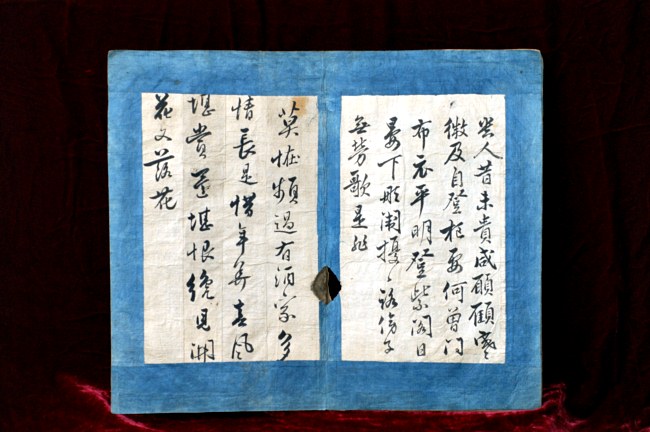 貴人昔未貴咸願顧寒
微及自登樞要何曾問
布衣平明登紫閣日
晏下彤闈擾々路傍子
無勞歌是非
莫怪頻過有酒家多
情長是惜年華春風
堪賞還堪恨纔見開
花又落花